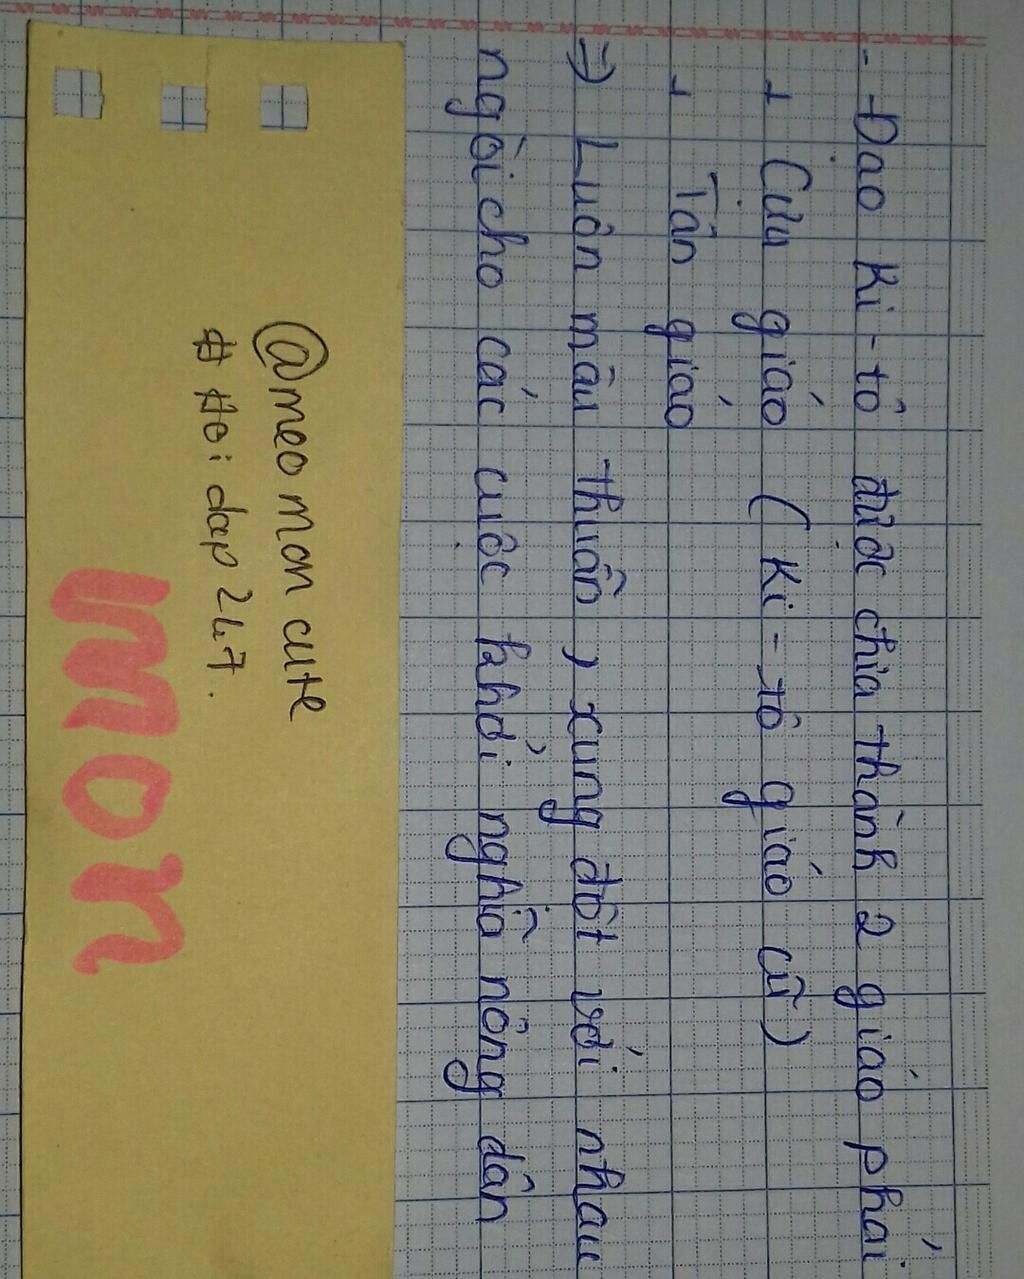 - Đạo Ki-tô được chia thành 2 giáo phái
+ Cựu giáo (Ki-tô giáo cũ)
+ Tân giáo
=> Luôn mâu thuẫn, xung đột với nhau
ngòi cho các cuộc khởi nghĩa nông dân
@meo mon cute
# Hoi dap 247.
mon